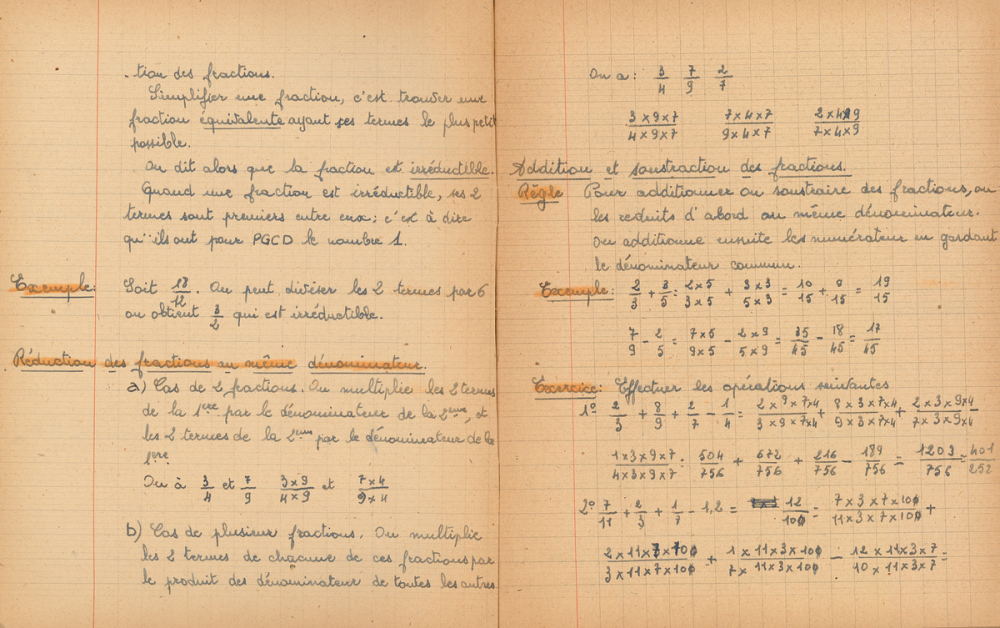 tion des fractions.
Simplifier une fraction, c'est trouver une
fraction équivalente ayant ses termes le plus petit
possible.
On dit alors que la fraction est irréductible.
Quand une fraction est irréductible, ses 2
termes sont premiers entre eux; c'est à dire
qu'ils ont pour PGCD le nombre 1.
Exemple: Soit 18/12. On peut diviser les 2 termes par 6
on obtient 3/2 qui est irréductible.
Réduction des fractions au même dénominateur.
a) Cas de 2 fractions. On multiplie les 2 termes
de la 1ère par le dénominateur de la 2ème, et
les 2 termes de la 2ème par le dénominateur de la
1ère
On à 3/4 et 7/9 3×9/4×9 et 7×4/9×4
b) Cas de plusieur fractions. On multiplie
les 2 termes de chacune de ces fractions par
le produit des dénominateur de toutes les autres.
On a: 3/4 7/9 2/7
3×9×7/4×9×7 7×4×7/9×4×7 2×4×9/7×4×9
Addition et soustraction des fractions.
Règle Pour additionner ou soustraire des fractions, on
les reduits d'abord au même dénominateur.
On additionne ensuite les numérateur en gardant
le dénominateur commun.
Exemple: 2/3 + 3/5 = 2×5/3×5 + 3×3/5×3 = 10/15 + 9/15 = 19/15
7/9 - 2/5 = 7×5/9×5 - 2×9/5×9 = 35/45 - 18/45 = 17/45
Exercice: Effectuer les opérations suivantes
1º 2/3 + 8/9 + 2/7 - 1/4 = 2×9×7×4/3×9×7×4 + 8×3×7×4/9×3×7×4 + 2×3×9×4/7×3×9×4 -
1×3×9×7/4×3×9×7 = 504/756 + 672/756 + 216/756 - 189/756 = 1203/756 = 401/252
2º 7/11 + 2/3 + 1/7 - 1,2 = 12/100 = 7×3×7×100/11×3×7×100 +
2×11×7×100/3×11×7×100 + 1×11×3×100/7×11×3×100 - 12×11×3×7/10×11×3×7 =